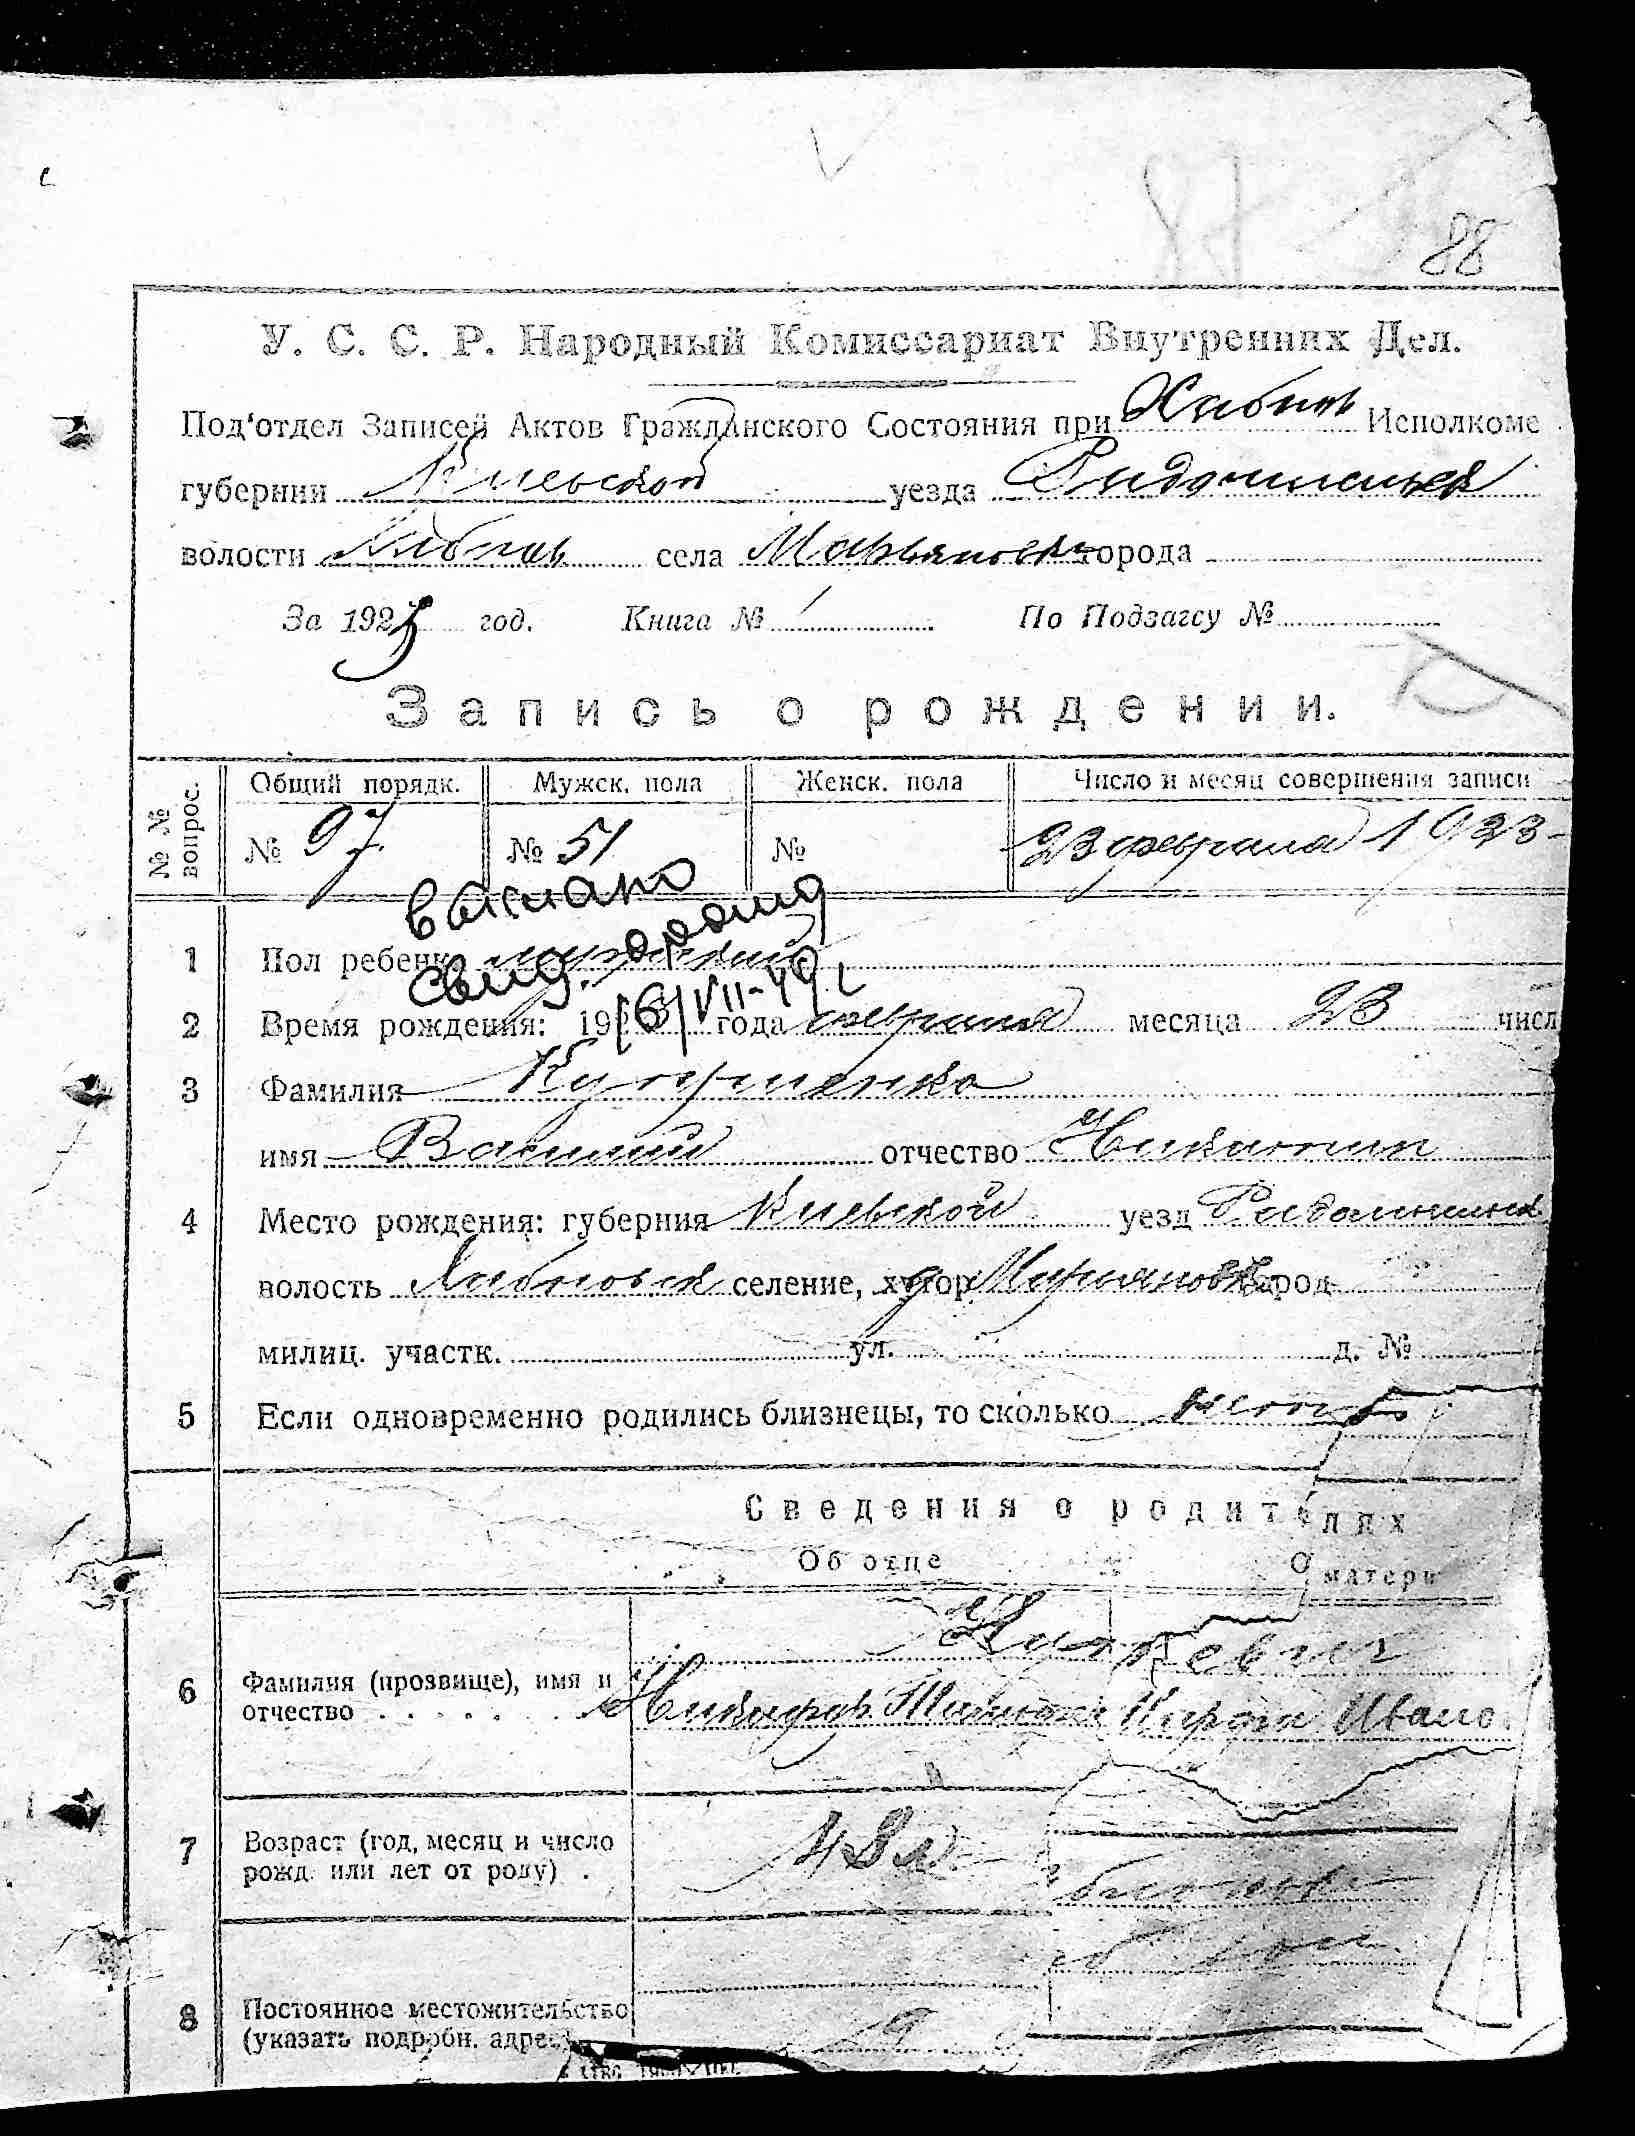 88
У. С. С. Р. Народный Комиссариат Внутренних Дел.
Под'отдел Записей Актов Гражданского Состояния при Хабнов Исполкоме
губернии Киевской уезда
волости Хабнов села Марьяновка города
За 1923 год. Книга № 1 По Подзагсу №
Запись о рождении.
№ № вопрос. Общий порядк. Мужск. пола Женск. пола Число и месяц совершения записи
№ 97 № 51 № 23 февраля 1923
выслано
1 Пол ребенка мужской
свид.
16/VII-49
2 Время рождения: 192 года февраля месяца 23 числ
3 Фамилия
имя Василий отчество
4 Место рождения: губерния Киевской уезд
волость Хабновск селение, хутор д Марьяновка город
милиц. участк. ул. д. №
5 Если одновременно родились близнецы, то сколько
Сведения о родителях
Об отце О матери
6 Фамилия (прозвище), имя и
отчество . . . . . Ивано
7 Возраст (год, месяц и число
рожд. или лет от роду) . 48 л
8 Постоянное местожительство
(указать подробн. адрес)